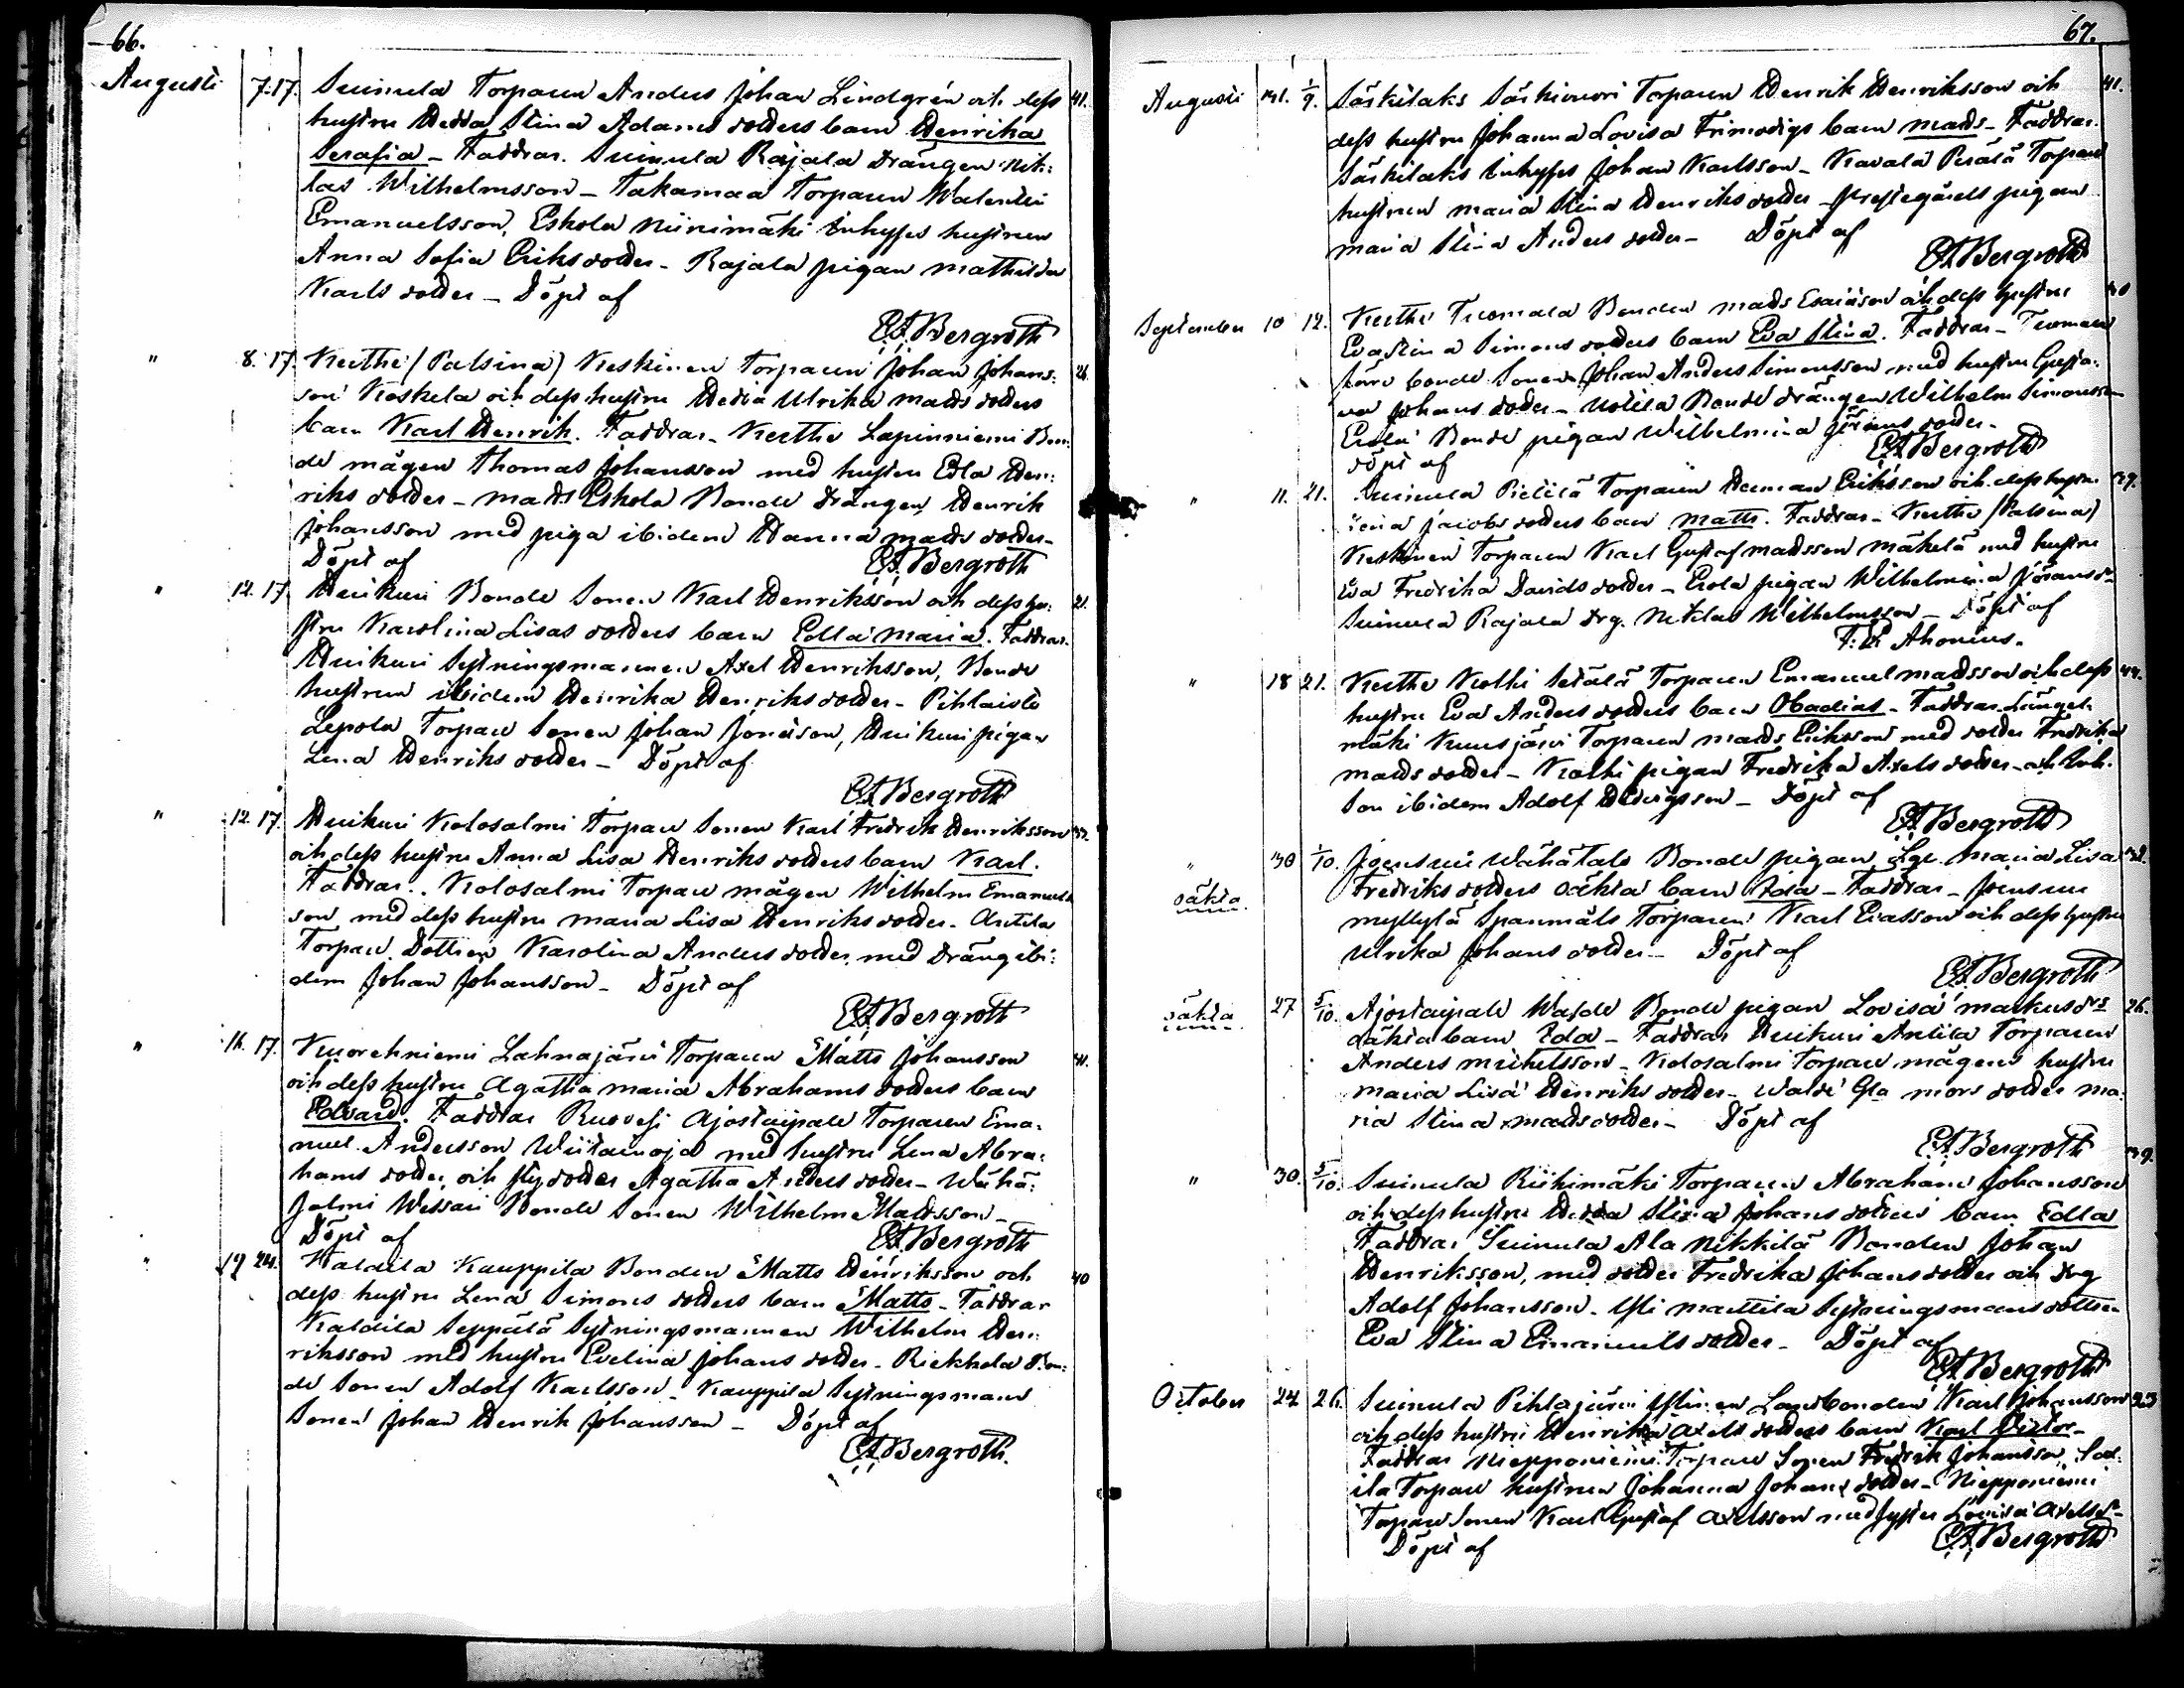 66.
Augusti 7. 17. Suinula Torparen Anders Johan Lindgrén och dess 41.
hustru Hedda Stina Adams dotters barn Henrika
Serafia – Faddrar. Suinula Rajala Drängen Nik:
las Wilhelmsson – Takamaa Torparen Walentin
Emanuelsson, Eskola Niinimäki Inhyses hustrun
Anna Sofia Eriks dotter – Rajala pigan Mathilda
Karls dotter – Döpt af
EA Bergroth
" 8. 17. Kuthi (Palsina) Keskinen Torparen Johan Johans: 26.
son Koskela och dess hustru Hedda Ulrika Matts dotters
barn Karl Henrik. Faddrar – Kuthi Lapinniemi Bon:
de mågen Thomas Johansson med hustru Edla Hen:
riks dotter – Matts Eskola Bonde Drängen Henrik
Johansson med piga ibidem Hanna Matts dotter –
Döpt af EA Bergroth
" 12. 17. Unikuni Bonde Sonen Karl Henriksson och dess hu: 21.
stru Karolina Lisas dotters barn Edla Maria. Faddrar.
Unikuni Sytningsmannen Axel Henriksson, Bonde
hustrun ibidem Henrika Henriks dotter – Pihlaisto
Lepola Torpare Sonen Johan Jonasson, Unikuni pigan
Lena Henriks dotter – Döpt af
EA Bergroth
" 12. 17. Unikuni Kolosalmi Torpare Sonen Karl Fredrik Henriksson 32.
och dess hustru Anna Lisa Henriks dotters barn Karl.
Faddrar. Kolosalmi Torpare mågen Wilhelm Emanuels
son med dess hustru Maria Lisa Henriks dotter – Antila
Torpare Dottren Karolina Anders dotter med Dräng ibi:
dem Johan Johansson – Döpt af
EA Bergroth
" 16. 17. Kuorehniemi Lahnajärvi Torparen Matts Johansson 41.
och dess hustru Agatha Maria Abrahams dotters barn
Edvard. Faddrar Ruovesi Ajostaipale Torparen Ema:
nuel Andersson Wiitainoja med hustru Lena Abra:
hams dotter, och stydotter Agatha Anders dotter – Wähä:
Salmi Wessari Bonde Sonen Wilhelm Mattsson –
Döpt af EA Bergroth
" 19 24. Haldila Kauppila Bonden Matts Henriksson och 40
dess hustru Lena Simons dotters barn Matts – Faddrar
Kaldila Seppälä Sytningsmannen Wilhelm Hen:
riksson med hustru Evelina Johans dotter – Riekkola Bon:
de Sonen Adolf Karlsson – Kauppila Sytningsmans
Sonen Johan Henrik Johansson – Döpt af
EA Bergroth.
67.
Augusti 31. 1/9. Säskilaks Säskivuori Torparen Henrik Henriksson och 41.
dess hustru Johanna Lovisa Frimodigs barn Mats – Faddrar.
Säskilaks Inhyses Johan Karlsson – Kavala Perälä Torpare
hustrun Maria Stina Henriks dotter – Prestegårds pigan
Maria Stina Anders dotter – Döpt af
EA Bergroth
September 10 12. Kuthi Tuomala Bonden Mats Esaiasson och dess hustru 40
Eva Stina Simons dotters barn Eva Stina. Faddrar – Tuomala
bonde Sonen Johan Anders Simonsson med hustru Gusta:
va Johans dotter – Bonde drängen Wilhelm Simonsson
Erola Bonde pigan Wilhelmina Jörans dotter –
döpt af EA Bergroth
" 11. 21. Suinula Pietilä Torparen Herman Eriksson och dess hustru 29.
Jacobs dotters barn Matts. Faddrar – Kuthi (Palsina)
Keskinen Torparen Karl Gustaf Madsson Mäkelä med hustru
Eva Fredrika Davids dotter – Erola pigan Wilhelmina Jöransdr
Suinula Rajala Drg. Niklas Wilhelmsson – Döpt af
F. E. Ahonius.
" 18 21. Kuthi Kolhi Setälä Torparen Emanuel Madsson och dess 44.
hustru Eva Anders dotters barn Obadias – Faddrar Längel:
mäki Kuusjärvi Torparen Mats Eriksson med dotter Fredrika
Mats dotter – Kolhi pigan Fredrika Axels dotter – och
Son ibidem Adolf Hedvigsson – Döpt af
EA Bergroth
" 30 1/10. Joensuu Wähätalo Bonde pigan Maria Lisa 32.
Fredriks dotters oäkta barn Ida – Faddrar – Joensuu
oäkta.
Myllylä Spanmåls Torparen Karl Evasson och dess hustru
Ulrika Johans dotter – Döpt af
EA Bergroth
oäkta 27 5/10. Ajostaipale Walde Bonde pigan Lovisa Markusdrs 26.
oäkta barn Ida – Faddrar Unikuni Antila Torparen
Anders Mickelsson – Kolosalmi Torpare mågens hustru
Maria Lisa Henriks dotter – Walde mors dotter Ma:
ria Stina Mads dotter – Döpt af
EA Bergroth
" 30. 5/10. Suinula Riihimäki Torparen Abraham Johansson 39.
och dess hustru Hedda Stina Johans dotters barn Edla
Faddrar Suinula Ala Nikkilä Bonden Johan
Henriksson, med dotter Fredrika Johans dotter och Drg
Adolf Johansson – Yli Marttila Sytningsmans dottren
Eva Stina Emanuels dotter – Döpt af
EA Bergroth
October 24 26. Suinula Pihlajärvi Ylinen Landbonden Karl Johansson 23
och dess hustru Henrika Axels dotters barn Karl Victor –
Faddrar Niepponiemi Torpare Sonen Fredrik Johansson,
Torpare hustrun Johanna Johans dotter – Niepponiemi
Torpare Sonen Karl Gustaf Axelsson med syster Lovisa Axelsdr –
Döpt af EA Bergroth